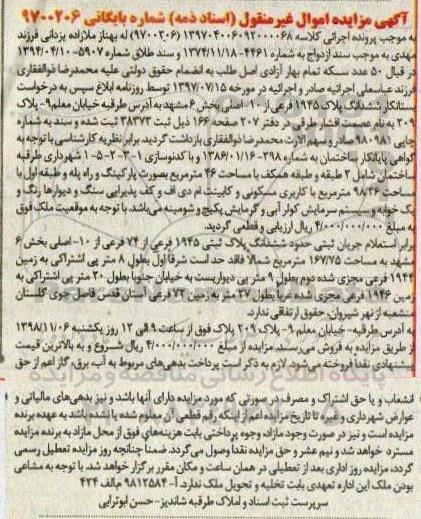 آگهی مزایده اموال غیرمنقول (اسناد ذمه) شماره بایگانی ۹۷۰۰۲۰۶
به موجب پرونده اجرائی کلاسه ۱۳۹۷۰۴۰۰۶۰۹۲۰۰۰۰۶۸ (۹۷۰۰۲۰۶) له بهناز ملازاده یزدانی فرزند
مهدی به موجب سند ازدواج به شماره ۴۴۶۱-۱۳۷۴/۱۱/۱۸ و سند طلاق شماره ۵۹۰۷-۱۳۹۴/۰۴/۱۰
در قبال ۵۰ عدد سکه تمام بهار آزادی اصل طلب به انضمام حقوق دولتی علیه محمدرضا ذوالفقاری
فرزند عباسعلی اجرائیه صادر و اجرائیه در مورخه ۱۳۹۷/۰۷/۱۵ توسط روزنامه ابلاغ سپس به درخواست
بستانکار ششدانگ پلاک ۱۹۴۵ فرعی از ۱۰-اصلی بخش ۶ مشهد به آدرس طرقبه خیابان معلم ۹- پلاک
۲۰۹ به نام عصمت افشار طرقی در دفتر ۲۰۷ صفحه ۱۶۶ ذیل ثبت ۳۸۳۷۳ ثبت شده و سند به شماره
چاپی ۹۸۰۹۸۱ صادر و سهم الارث محمدرضا ذوالفقاری بازداشت گردید. برابر نظریه کارشناسی با توجه به
گواهی پایانکار ساختمان به شماره ۲۹۸-۱۳۸۶/۰۱/۱۶ و با کدنوسازی ۱-۳-۲-۵-۱ شهرداری طرقبه
ساختمان شامل ۲ طبقه و طبقه همکف با مساحت ۴۶ مترمربع بصورت پارکینگ و راه پله و طبقه اول با
مساحت ۹۸/۳۶ مترمربع با کاربری مسکونی و کابینت ام دی اف و کف پذیرایی سنگ و دیوارها رنگ و
یک خوابه و سیستم سرمایش کولر آبی و گرمایش پکیج و شومینه می‌باشد. با توجه به موقعیت ملک فوق
به مبلغ ۴/۰۰۰/۰۰۰/۰۰۰ ریال ارزیابی و قطعی گردید.
برابر استعلام جریان ثبتی حدود ششدانگ پلاک ثبتی ۱۹۴۵ فرعی از ۷۴ فرعی از ۱۰-اصلی بخش ۶
مشهد به مساحت ۱۶۷/۷۵ مترمربع شمالا فاقد حد است شرقا اول بطول ۸ متر پی اشتراکی به زمین
۱۹۴۴ فرعی مجزی شده دوم بطول ۹ متر پی دیواریست به خیابان جنوبا بطول ۲۰ متر پی اشتراکی به
زمین ۱۹۴۶ فرعی مجزی شده غربا بطول ۲۷ متر به زمین ۷۳ فرعی آستان قدس فاصل جوی گلستان
منشعبه از نهر شیروان، حقوق ارتفاقی ندارد.
به آدرس طرقبه- خیابان معلم ۹- پلاک ۲۰۹ پلاک فوق از ساعت ۹ الی ۱۲ روز یکشنبه ۱۳۹۸/۱۱/۰۶
از طریق مزایده به فروش می‌رسد. مزایده از مبلغ ۴/۰۰۰/۰۰۰/۰۰۰ ریال شروع و به بالاترین قیمت
پیشنهادی نقدا فروخته می‌شود. لازم به ذکر است پرداخت بدهی‌های مربوط به آب، برق، گاز اعم از حق
انشعاب و یا حق اشتراک و مصرف در صورتی که مورد مزایده دارای آنها باشد و نیز بدهی‌های مالیاتی و
عوارض شهرداری و غیره تا تاریخ مزایده اعم از اینکه رقم قطعی آن معلوم شده یا نشده باشد به عهده برنده
مزایده است و نیز در صورت وجود مازاد، وجوه پرداختی بابت هزینه‌های فوق از محل مازاد به برنده مزایده
مسترد خواهد شد و نیم عشر و حق مزایده نقدا وصول می‌گردد. ضمنا چنانچه روز مزایده تعطیل رسمی
گردد، مزایده روز اداری بعد از تعطیلی در همان ساعت و مکان مقرر برگزار خواهد شد. با توجه به مشاعی
بودن ملک این اداره تعهدی بابت تخلیه و تحویل ملک ندارد. آ- ۹۸۱۲۵۸۴ م‌الف ۴۲۴
سرپرست ثبت اسناد و املاک طرقبه شاندیز- حسن ابوترابی